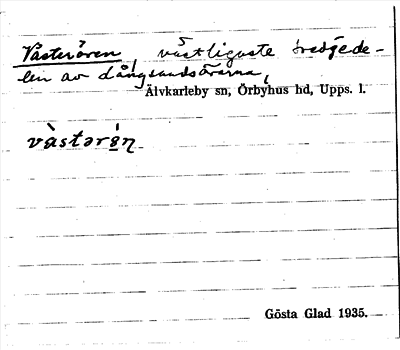 Västerören, västligaste tredjede-
len av Långsandsörarna,
Älvkarleby sn, Örbyhus hd, Upps. l.
västərö̀n
Gösta Glad 1935.